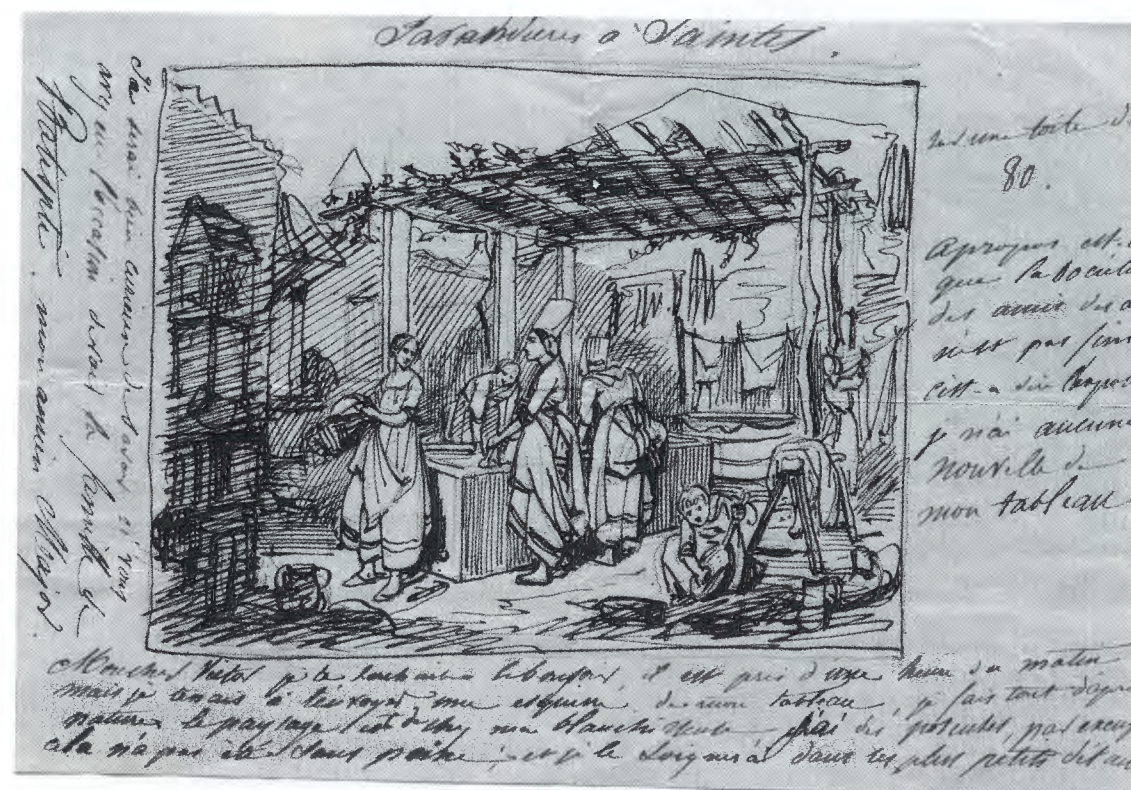 Lavandières à Saintes.
Sur une toile de
80.
Apropos est-
que la société
des amis des a
n'est pas fini
c'est-a dire
je n'ai aucune
nouvelle de
mon tableau
Mon cher Victor je te souhaite le bonsoir, il est près d'une heure du matin
mais je tenais à t'envoyer une esquisse de mon tableau, je fais tout d'après
nature le paysage est de chez ma blanchisseuse. J'ai des
cela n'a pas été sans peine, et je le soignerai dans ses plus petits détails
Je serai bien curieux de savoir si vous
avez eu l'occasion de voir la famille de
Baptiste mon ancien Major.